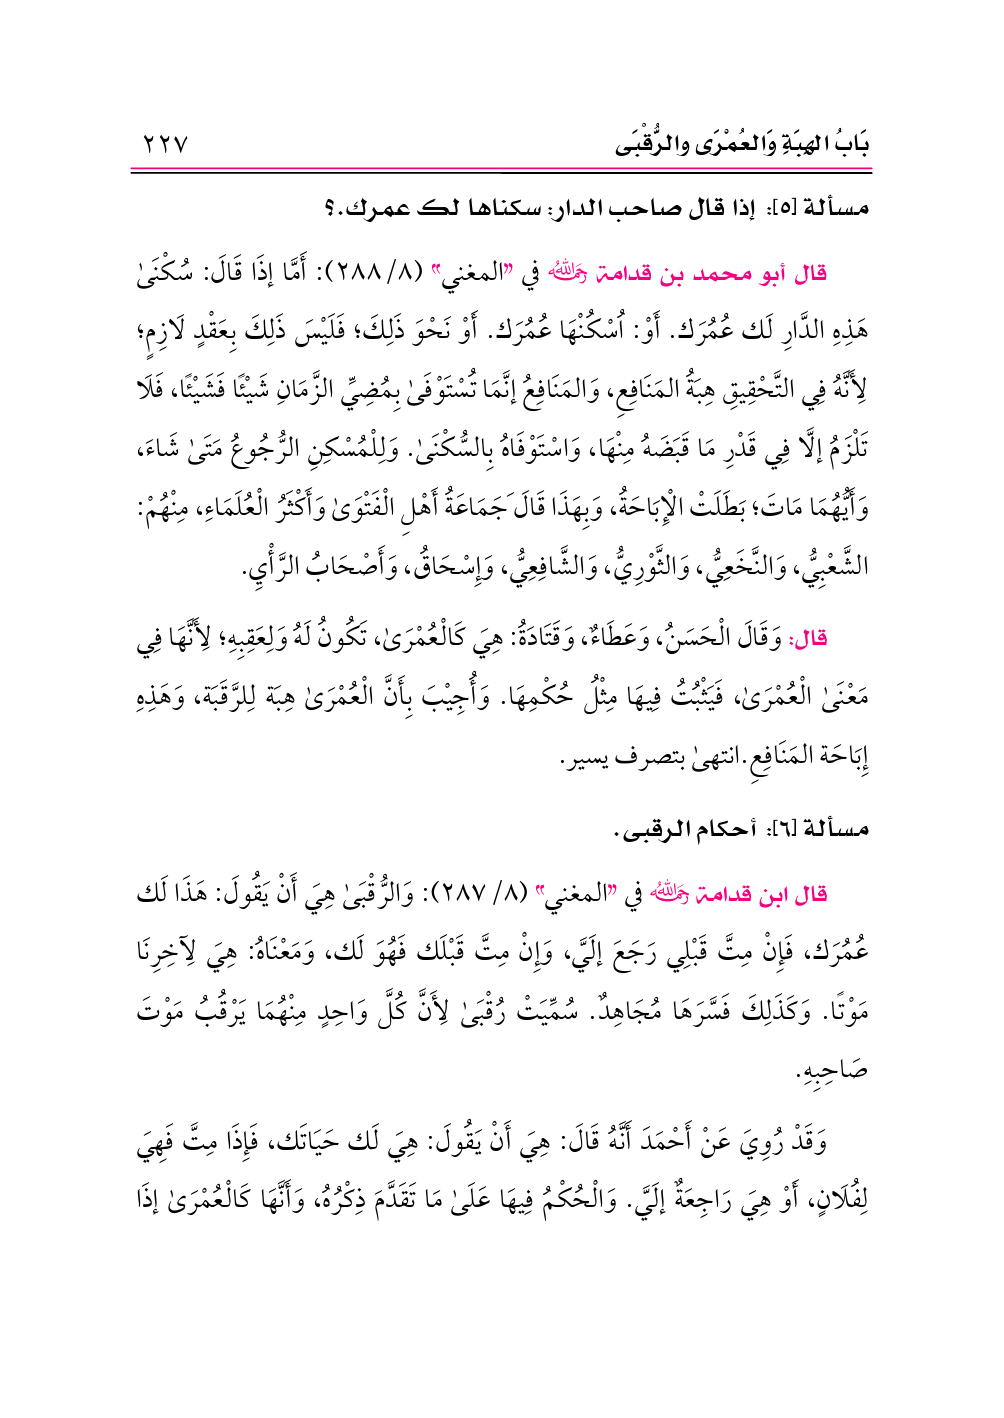 بَابُ الهِبَةِ وَالعُمْرَى والرُّقْبَى ٢٢٧
مسألة [٥]: إذا قال صاحب الدار: سكناها لك عمرك.؟
قال أبو محمد بن قدامة رحمه الله في ”المغني“ (٨/ ٢٨٨): أَمَّا إذَا قَالَ: سُكْنَىٰ
هَذِهِ الدَّارِ لَك عُمُرَك. أَوْ: اُسْكُنْهَا عُمُرَك. أَوْ نَحْوَ ذَلِكَ؛ فَلَيْسَ ذَلِكَ بِعَقْدٍ لَازِمٍ؛
لِأَنَّهُ فِي التَّحْقِيقِ هِبَةُ المَنَافِعِ، وَالمَنَافِعُ إنَّمَا تُسْتَوْفَىٰ بِمُضِيِّ الزَّمَانِ شَيْئًا فَشَيْئًا، فَلَا
تَلْزَمُ إلَّا فِي قَدْرِ مَا قَبَضَهُ مِنْهَا، وَاسْتَوْفَاهُ بِالسُّكْنَىٰ. وَلِلْمُسْكِنِ الرُّجُوعُ مَتَىٰ شَاءَ،
وَأَيُّهُمَا مَاتَ؛ بَطَلَتْ الْإِبَاحَةُ، وَبِهَذَا قَالَ جَمَاعَةُ أَهْلِ الْفَتْوَىٰ وَأَكْثَرُ الْعُلَمَاءِ، مِنْهُمْ:
الشَّعْبِيُّ، وَالنَّخَعِيُّ، وَالثَّوْرِيُّ، وَالشَّافِعِيُّ، وَإِسْحَاقُ، وَأَصْحَابُ الرَّأْيِ.
قال: وَقَالَ الْحَسَنُ، وَعَطَاءٌ، وَقَتَادَةُ: هِيَ كَالْعُمْرَىٰ، تَكُونُ لَهُ وَلِعَقِبِهِ؛ لِأَنَّهَا فِي
مَعْنَىٰ الْعُمْرَىٰ، فَيَثْبُتُ فِيهَا مِثْلُ حُكْمِهَا. وَأُجِيْبَ بِأَنَّ الْعُمْرَىٰ هِبَة لِلرَّقَبَة، وَهَذِهِ
إِبَاحَة المَنَافِعِ.انتهىٰ بتصرف يسير.
مسألة [٦]: أحكام الرقبى.
قال ابن قدامة رحمه الله في ”المغني“ (٨/ ٢٨٧): وَالرُّقْبَىٰ هِيَ أَنْ يَقُولَ: هَذَا لَك
عُمُرَك، فَإِنْ مِتَّ قَبْلِي رَجَعَ إلَيَّ، وَإِنْ مِتَّ قَبْلَك فَهُوَ لَك، وَمَعْنَاهُ: هِيَ لِآخِرِنَا
مَوْتًا. وَكَذَلِكَ فَسَّرَهَا مُجَاهِدٌ. سُمِّيَتْ رُقْبَىٰ لِأَنَّ كُلَّ وَاحِدٍ مِنْهُمَا يَرْقُبُ مَوْتَ
صَاحِبِهِ.
وَقَدْ رُوِيَ عَنْ أَحْمَدَ أَنَّهُ قَالَ: هِيَ أَنْ يَقُولَ: هِيَ لَك حَيَاتَك، فَإِذَا مِتَّ فَهِيَ
لِفُلَانٍ، أَوْ هِيَ رَاجِعَةٌ إلَيَّ. وَالْحُكْمُ فِيهَا عَلَىٰ مَا تَقَدَّمَ ذِكْرُهُ، وَأَنَّهَا كَالْعُمْرَىٰ إذَا